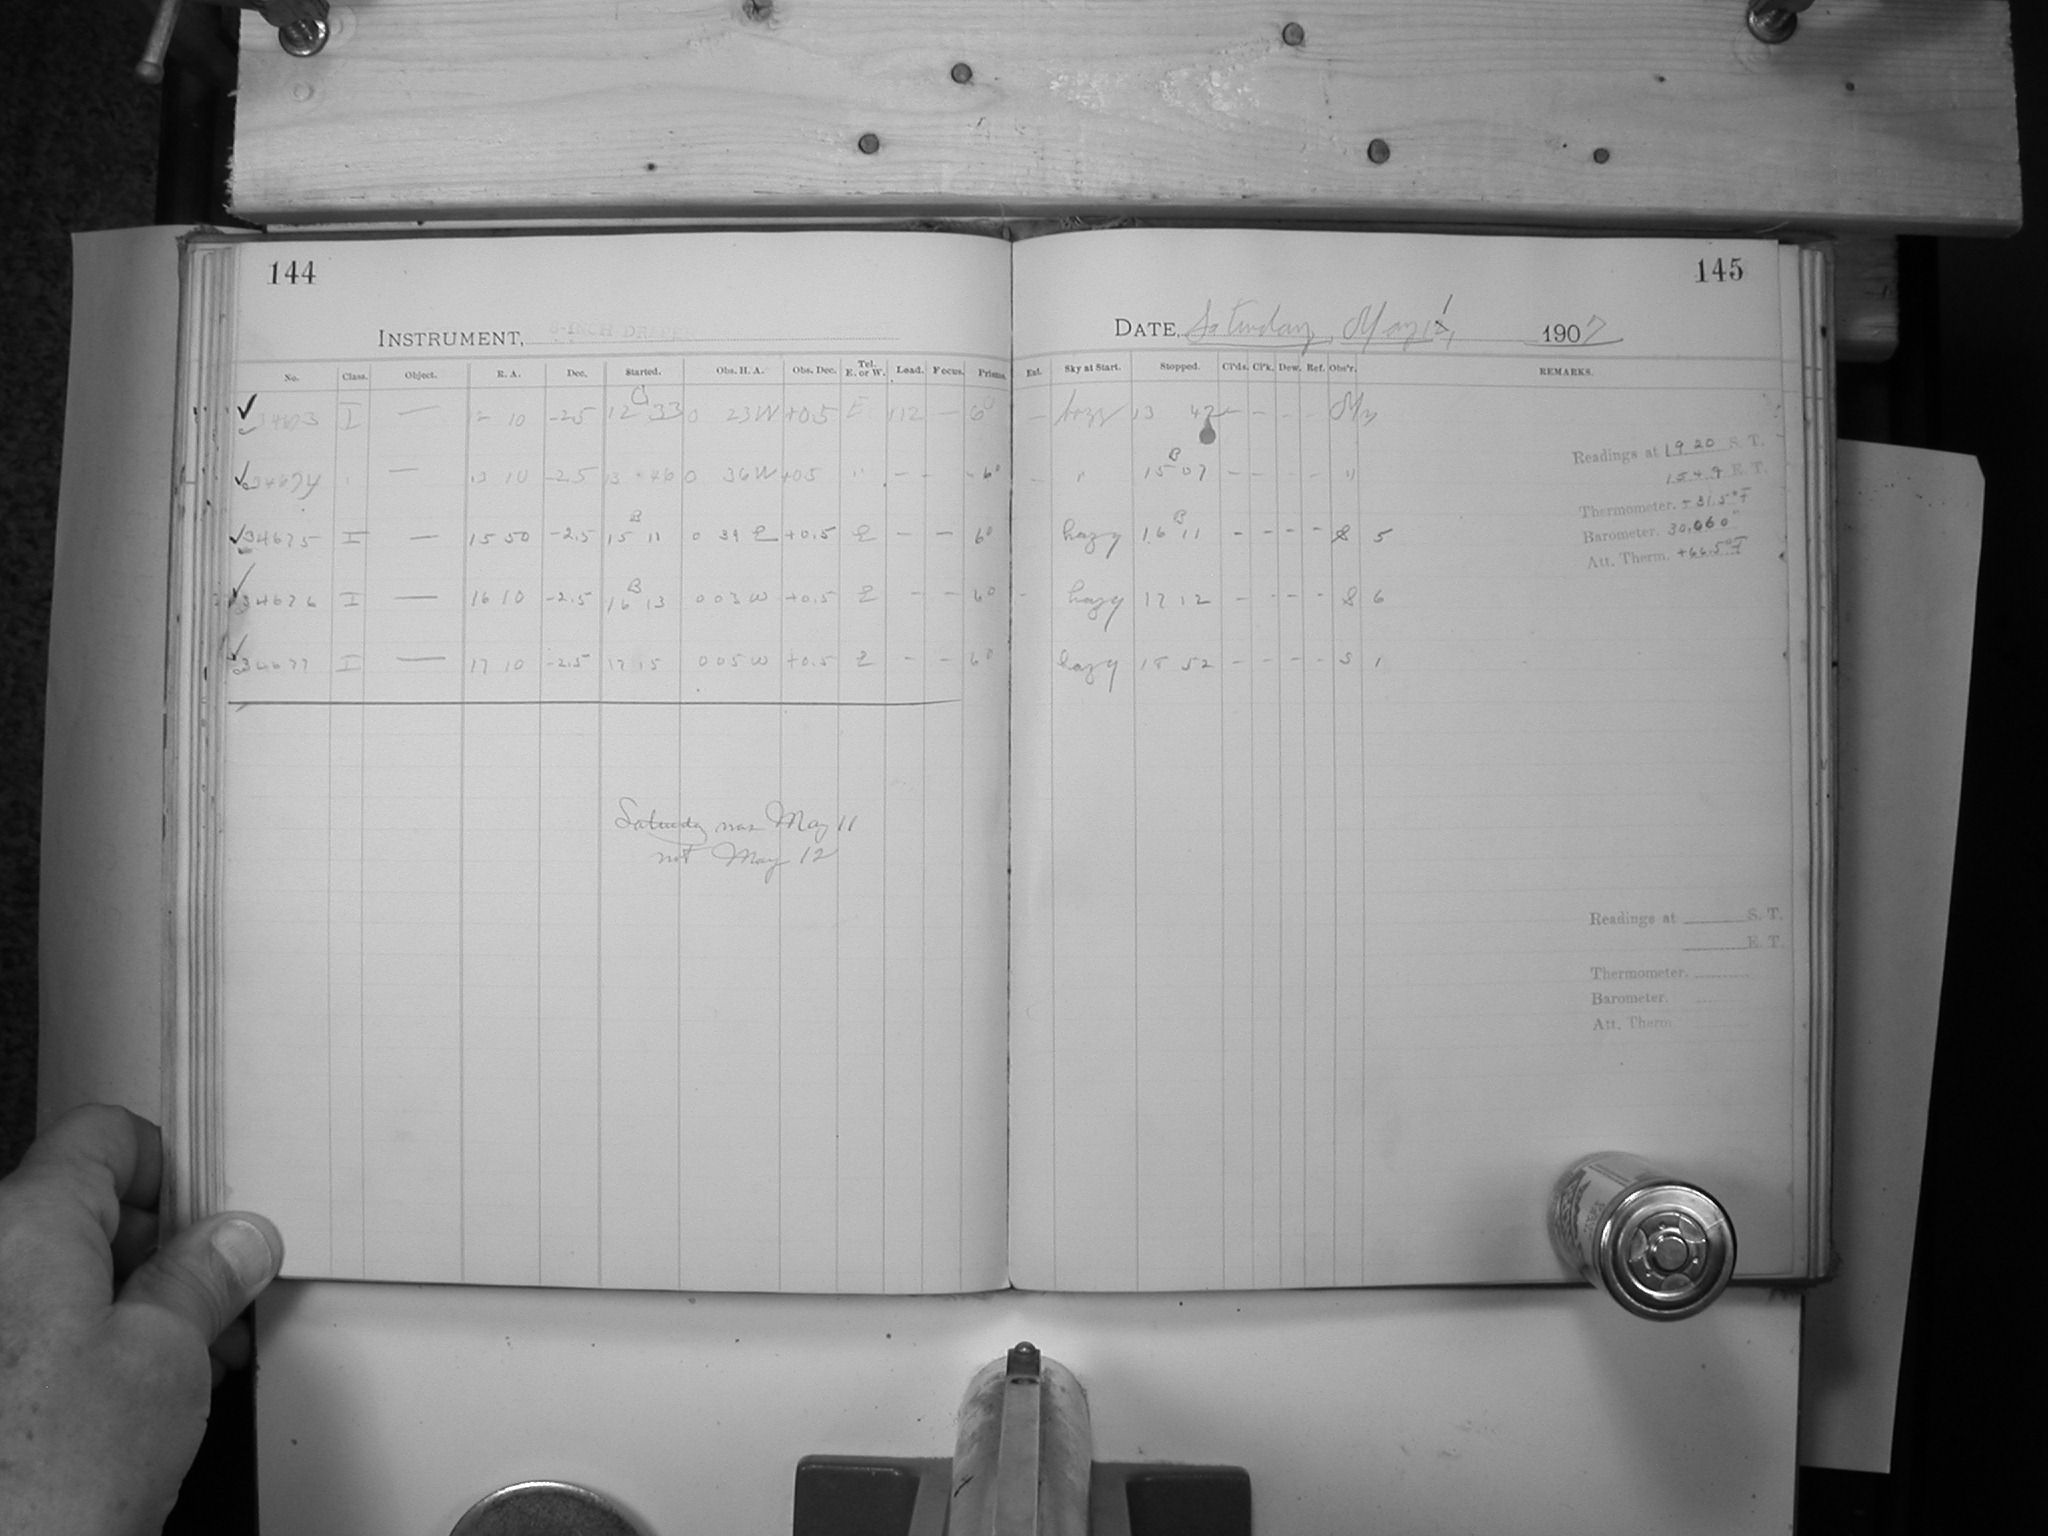 144
INSTRUMENT, 8-INCH DRAPER
No. Class. Object. R. A. Dec. Started. Obs. H. A. Obs. Dec. Tel. E. or W. Lead. Focus. Prisms.
34673 I — 12 10 -25 12 33 0 23 W +0.5 E 112 — 6°
34674 " — 13 10 -2.5 13 46 0 36 W +0.5 " - - - 6°
B
34675 I — 15 50 -2.5 15 11 0 39 E +0.5 E - - 6°
B
34676 I — 16 10 -2.5 16 13 0 03 W +0.5 E - - 6°
34677 I — 17 10 -2.5 17 15 0 05 W +0.5 E - - 6°
Saturday was May 11
not May 12
145
DATE, Saturday, May 11, 1907
Ext. Sky at Start. Stopped. Cl'ds. Cl'k. Dew. Ref. Obs'r. REMARKS.
— hazy 13 42 - - - -
B
- " 15 07 - - - - "
B
hazy 16 11 - - - - S 5
- hazy 17 12 - - - - S 6
hazy 18 52 - - - - S 1
Readings at 19 20 S. T.
E. T.
Thermometer. +31.5°F
Barometer. 30.060"
Att. Therm. +66.5°F
Readings at S. T.
E. T.
Thermometer.
Barometer.
Att. Therm.